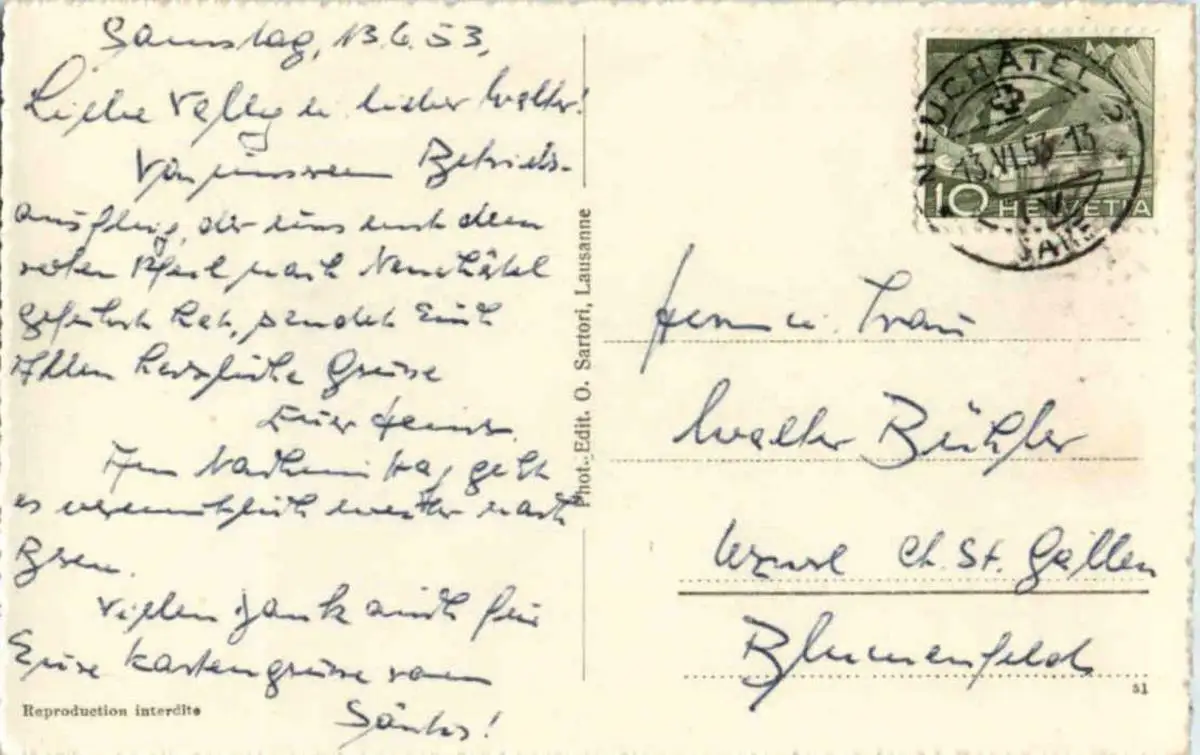 Samstag, 13.6.53,
Liebe Vally u. lieber Walter!
Von unserem Betriebs-
ausflug, der uns mit dem
roten Pfeil nach Neuchâtel
geführt hat, sendet Euch
Allen herzliche Grüsse
Euer Heinz.
Am Nachmittag geht
es vermutlich weiter nach
Bern.
Vielen Dank auch für
Eure Kartengrüsse vom
Säntis!
Reproduction interdite
Phot. Edit. O. Sartori, Lausanne
NEUCHÂTEL 2
13.VI.53-13
GARE
10 HELVETIA
Herrn u. Frau
Walter Bühler
Uzwil Ct. St. Gallen
Blumenfeld
51